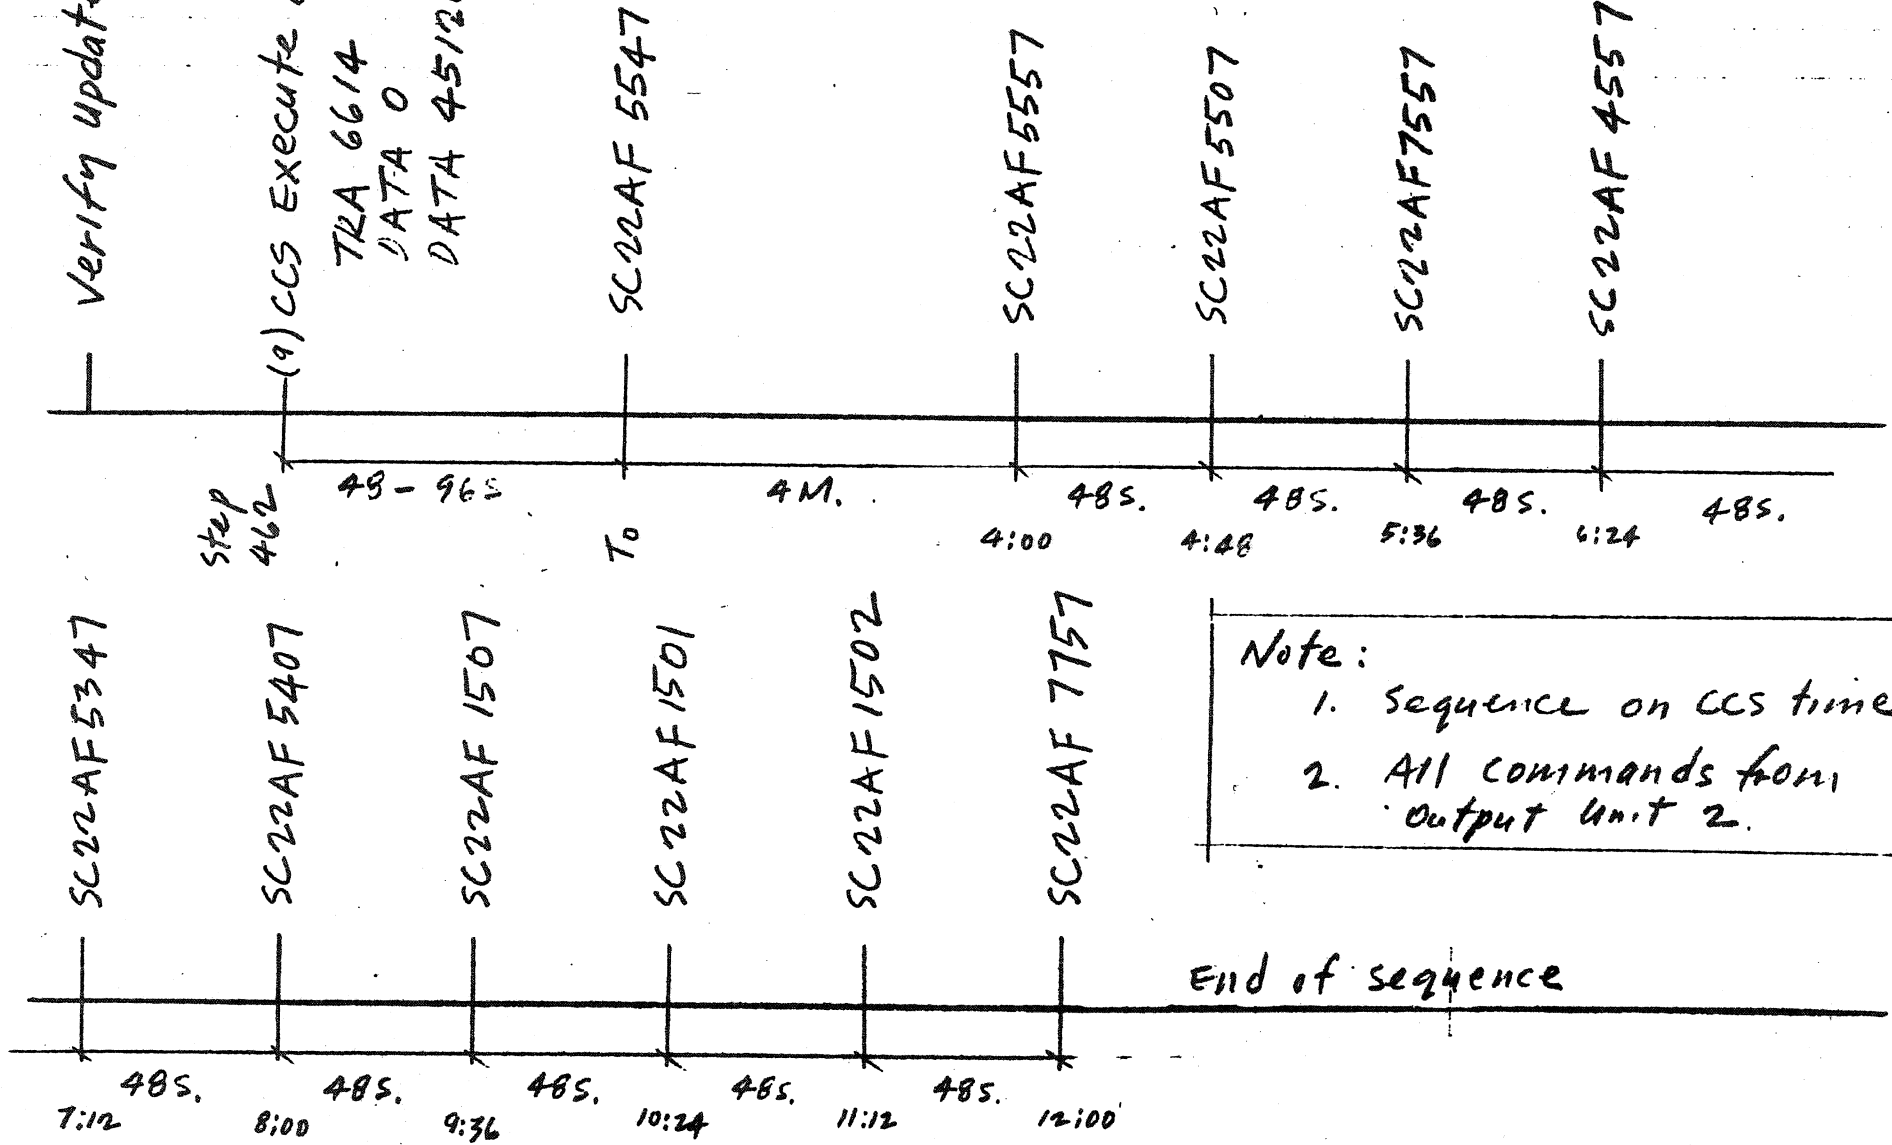 Verify
(9) CCS Execute
TRA 6614
DATA 0
DATA 4512
SC22AF 5547
SC22AF5557
SC22AF5507
SC22AF7557
SC22AF 4557
Step
462
48 - 96s
To
4M.
48S.
48S.
48S.
48S.
4:00
4:48
5:36
6:24
SC22AF5347
SC22AF 5407
SC22AF 1507
SC22AF1501
SC22AF1502
SC22AF 7757
Note:
1. Sequence on CCS time
2. All commands from
Output Unit 2.
End of sequence
48S.
48S.
48S.
48S.
48S.
7:12
8:00
9:36
10:24
11:12
12:00